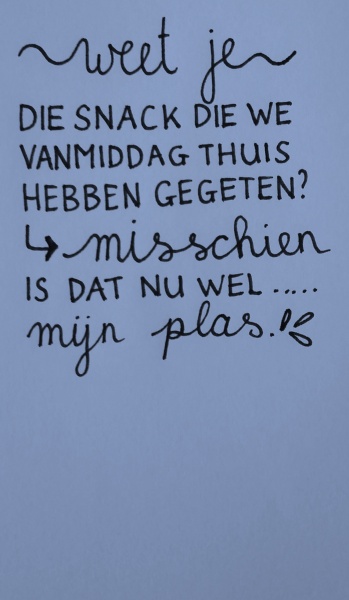 weet je
DIE SNACK DIE WE
VANMIDDAG THUIS
HEBBEN GEGETEN?
↳ misschien
IS DAT NU WEL .....
mijn plas.